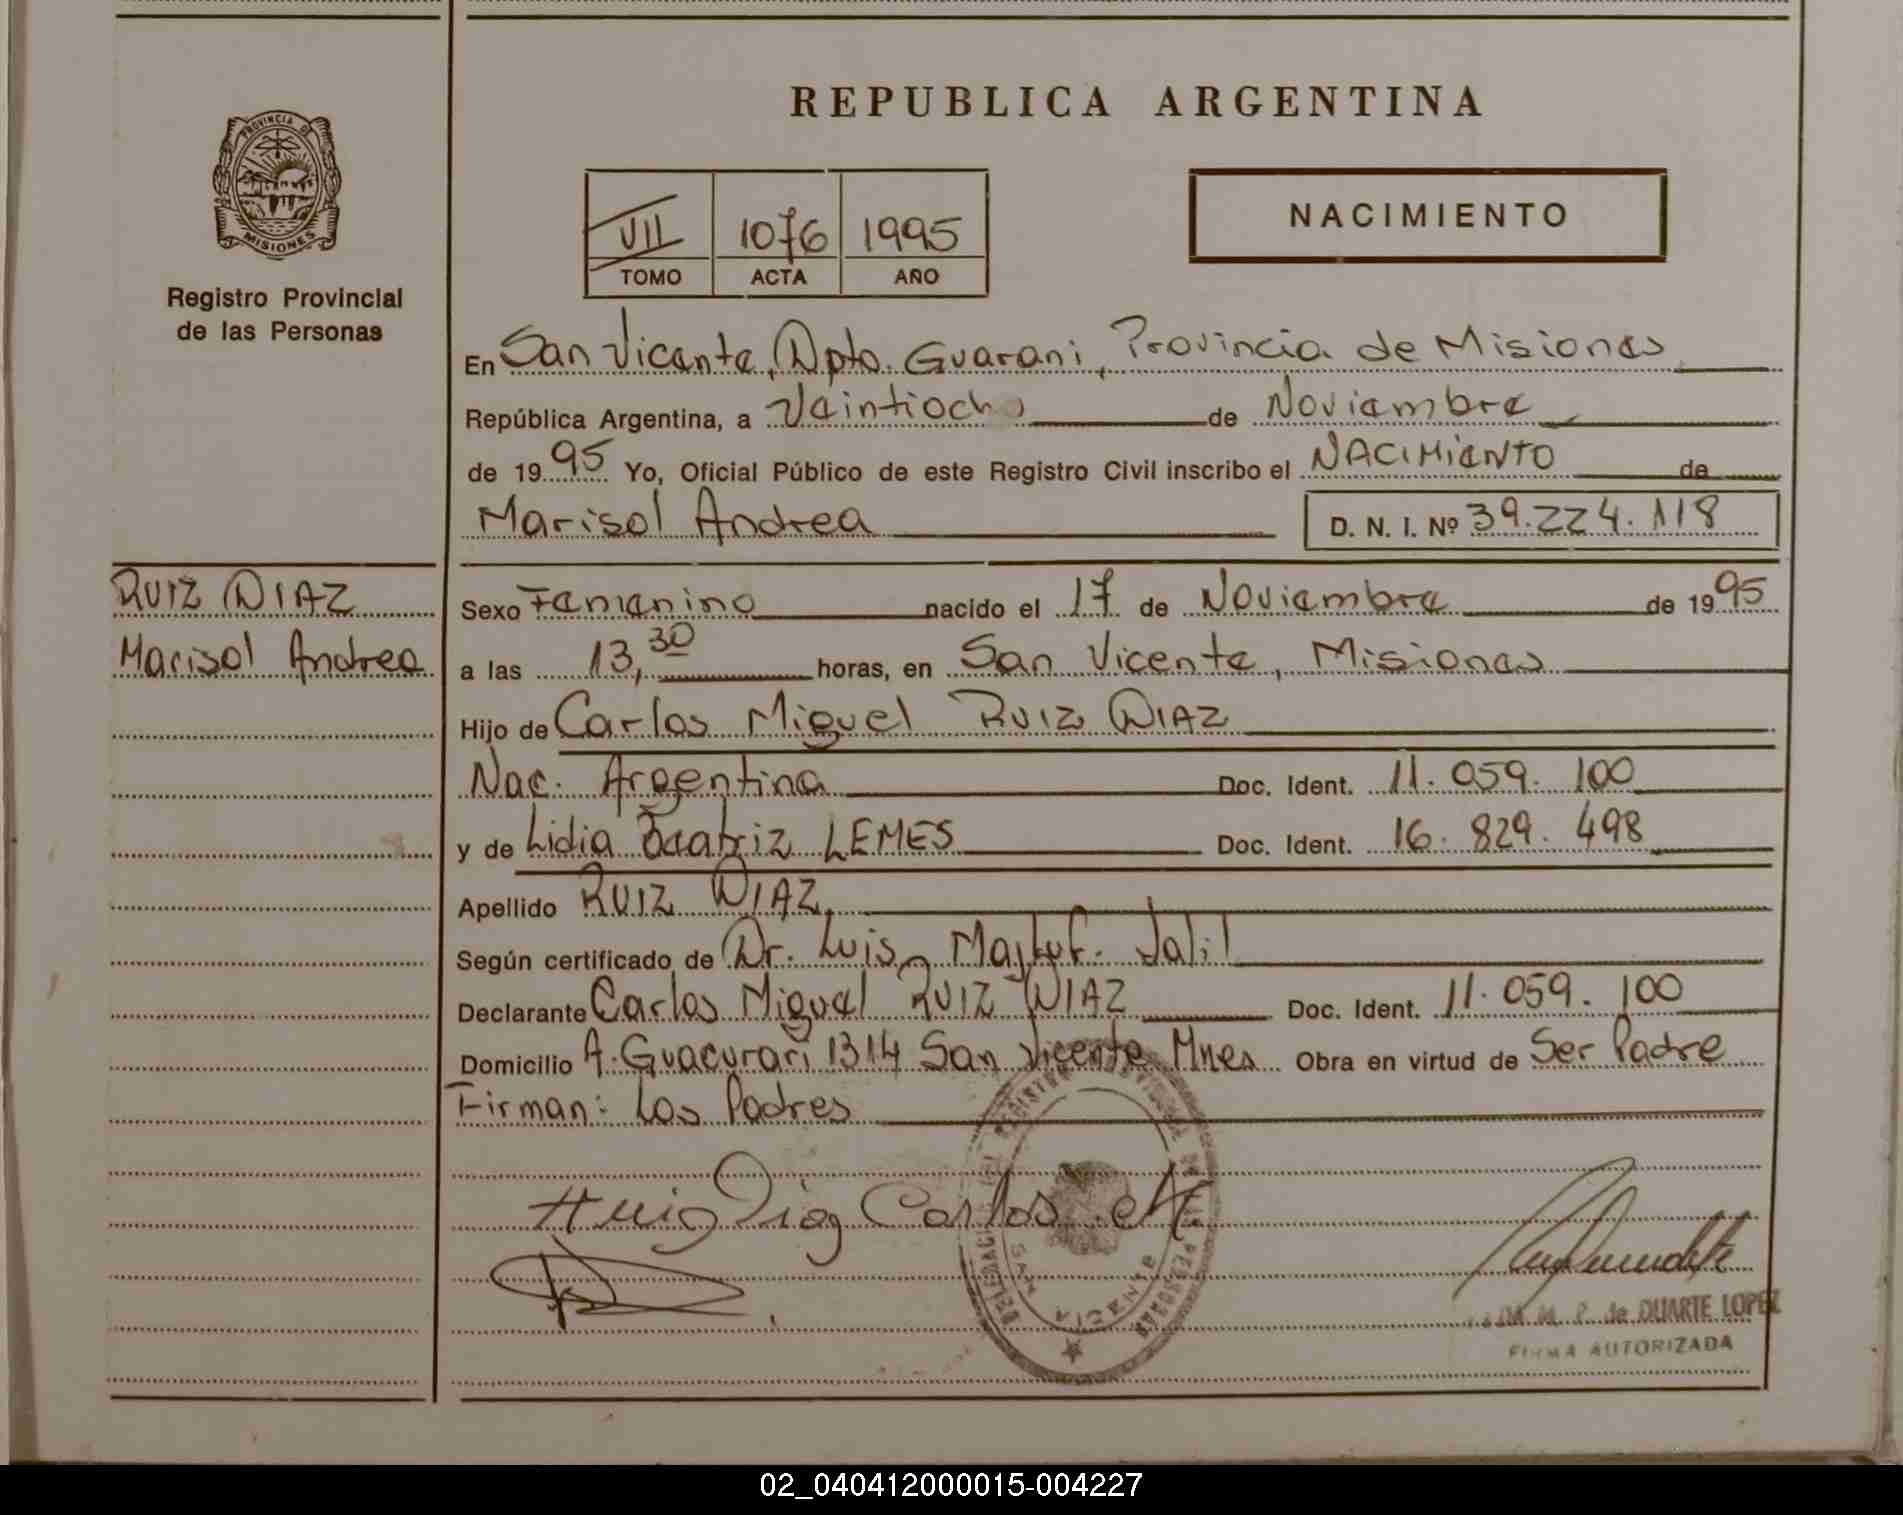 REPUBLICA ARGENTINA
PROVINCIA DE
MISIONES
Registro Provincial
de las Personas
VII 1076 1995
TOMO ACTA AÑO
NACIMIENTO
En San Vicente, Dpto. Guarani, Provincia de Misiones
República Argentina, a Veintiocho de Noviembre
de 1995 Yo, Oficial Público de este Registro Civil inscribo el NACIMIENTO de
Marisol Andrea D. N. I. Nº 39.224.118
RUIZ DIAZ
Marisol Andrea
Sexo Femenino nacido el 17 de Noviembre de 1995
a las 13,30 horas, en San Vicente, Misiones
Hijo de Carlos Miguel RUIZ DIAZ
Nac. Argentina Doc. Ident. 11.059.100
y de Lidia Beatriz LEMES Doc. Ident. 16.829.498
Apellido RUIZ DIAZ
Según certificado de Dr. Luis Jalil
Declarante Carlos Miguel RUIZ DIAZ Doc. Ident. 11.059.100
Domicilio A. Guacurari 1314 San Vicente Mnes Obra en virtud de Ser Padre
Firman: Los Padres
Ruiz Diaz Carlos M.
SAN VICENTE
M. P. de DUARTE LOPEZ
FIRMA AUTORIZADA
02_040412000015-004227